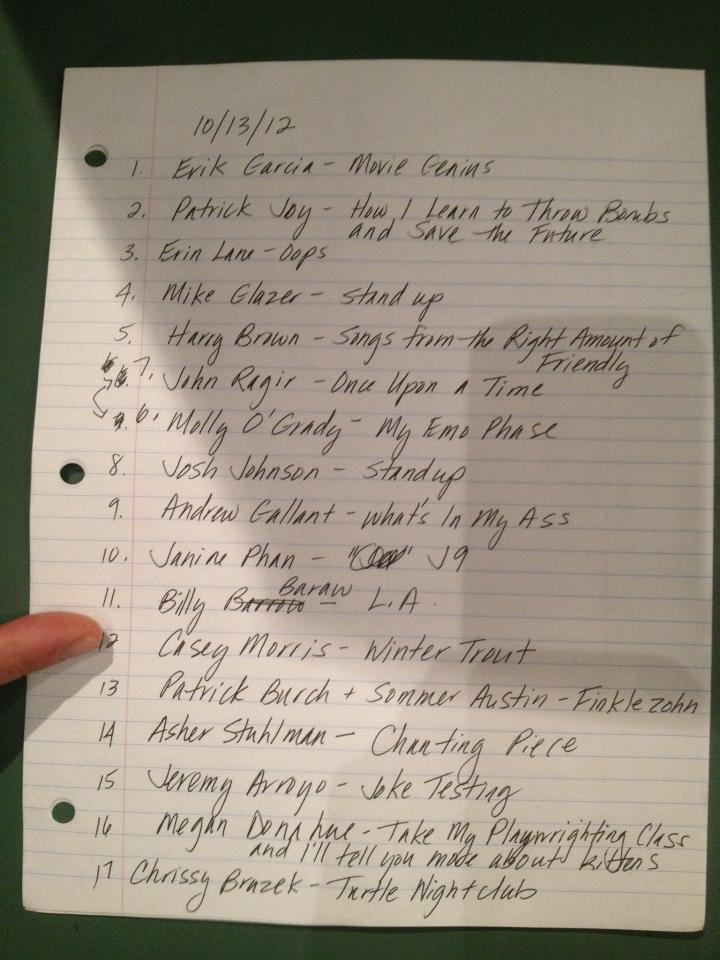 10/13/12
1. Erik Garcia - Movie Genius
2. Patrick Joy - How I Learn to Throw Bombs
and Save the Future
3. Erin Lane - Oops
4. Mike Glazer - Stand up
5. Harry Brown - Songs from the Right Amount of
Friendly
7. John Ragir - Once Upon a Time
6. Molly O'Grady - My Emo Phase
8. Josh Johnson - Standup
9. Andrew Gallant - What's In My Ass
10. Janine Phan - J9
11. Billy Barrow Baraw - L.A.
12 Casey Morris - Winter Trout
13 Patrick Burch + Sommer Austin - Finklezohn
14 Asher Stuhlman - Chanting Piece
15 Jeremy Arroyo - Joke Testing
16 Megan Donahue - Take My Playwrighting Class
and I'll tell you more about kittens
17 Chrissy Brazek - Turtle Nightclub